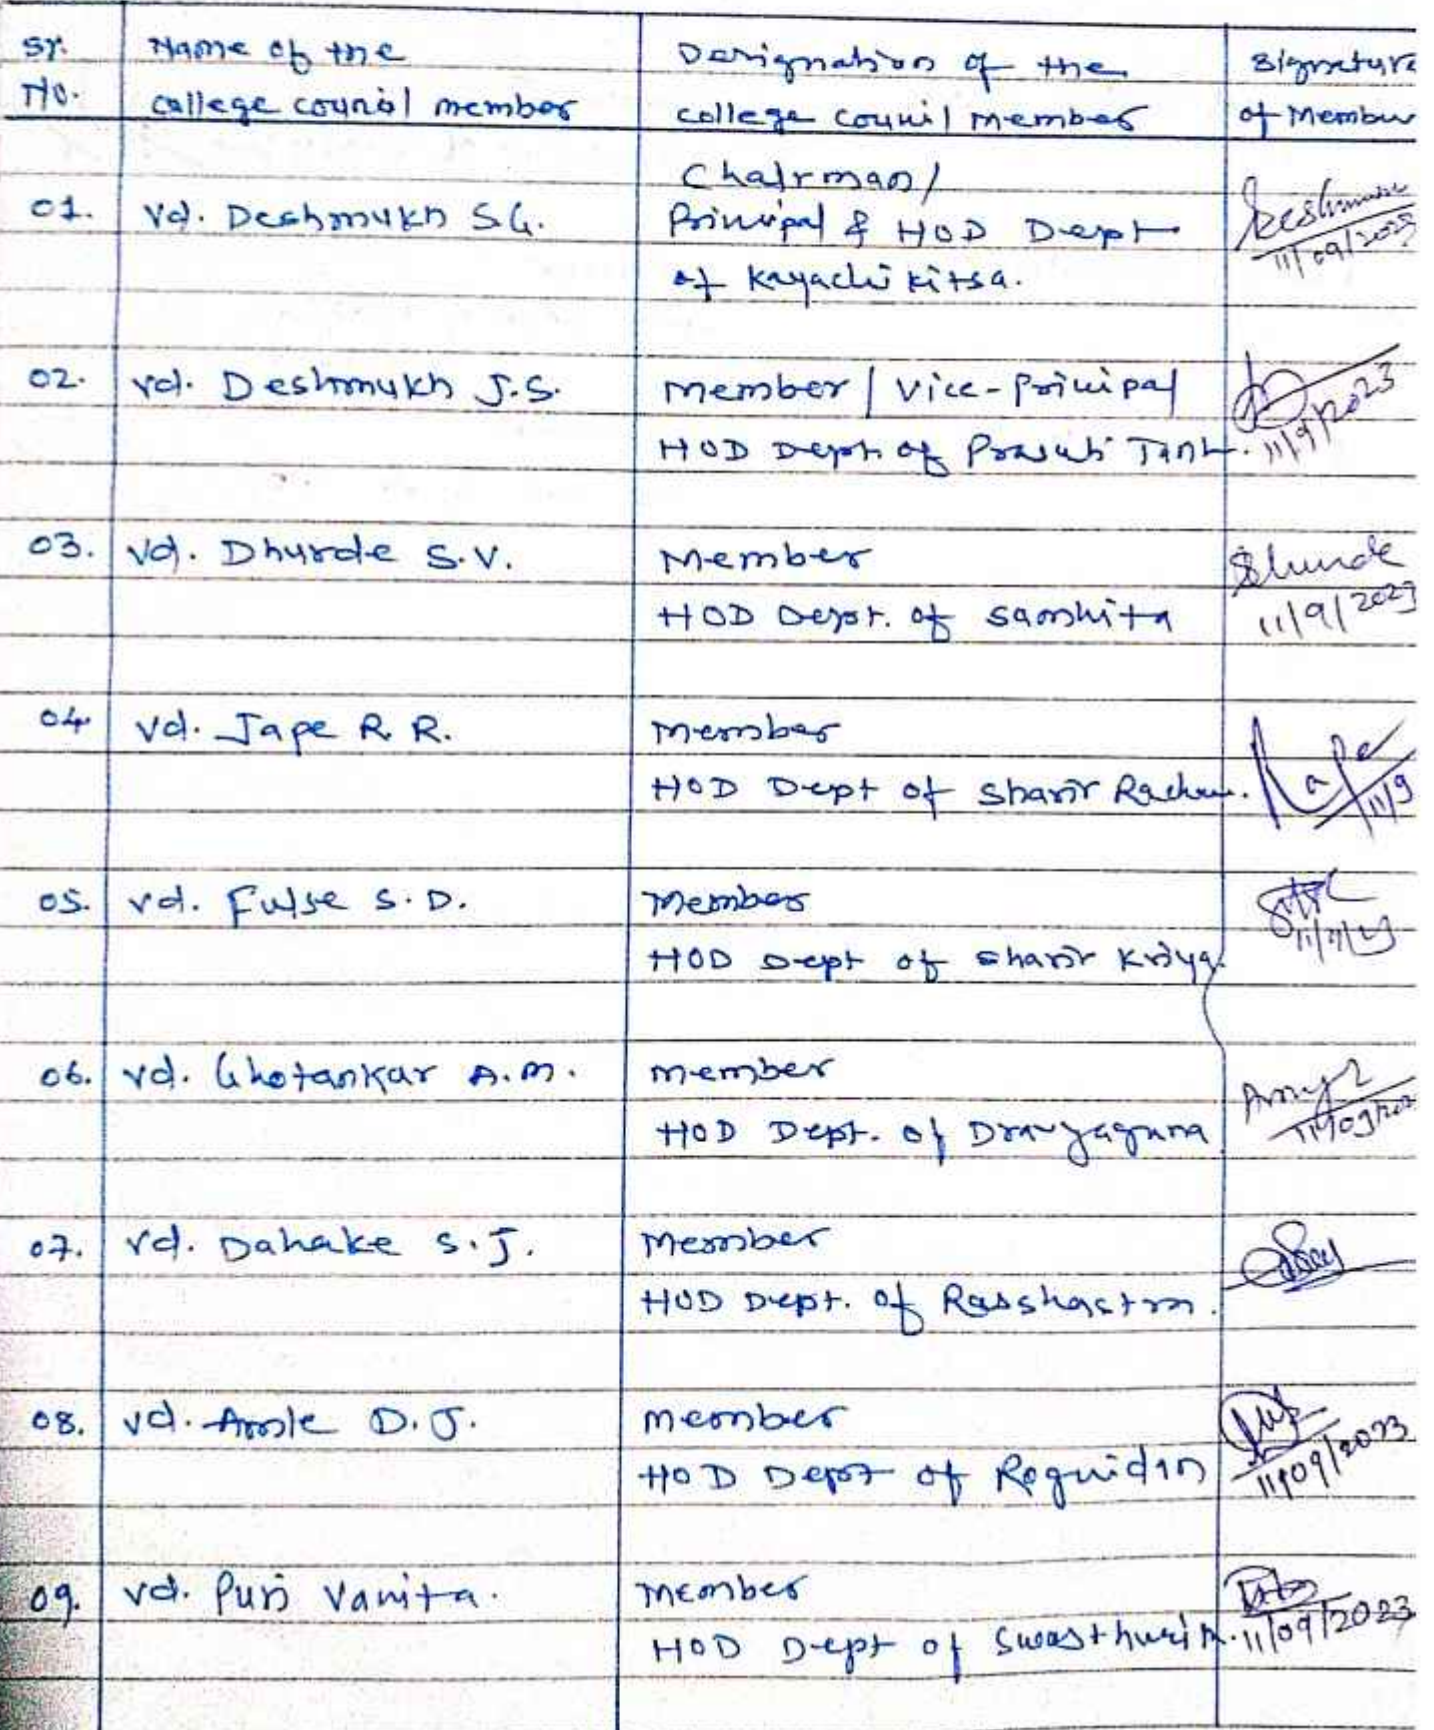 Sr. Name of the Designation of the Signature
No. college council member college council member of Member
Chairman/
01. Vd. Deshmukh S.G. Principal & HOD Dept
of Kayachikitsa.
11/09/2023
02. Vd. Deshmukh J.S. Member / Vice-Principal
HOD Dept. of Prasuti Tant. 11/9/2023
03. Vd. Dhurde S.V. Member
HOD Dept. of Samhita 11/9/2023
04. Vd. Jape R. R. Member
HOD Dept of Sharir Rachna. 11/9
05. Vd. Fulse S.D. Member
HOD Dept of Sharir Kriya.
06. Vd. Ghotankar A.M. Member
HOD Dept. of Dravyaguna
07. Vd. Dahake S.J. Member
HOD Dept. of Rasshastra.
08. Vd. Amle D.J. Member
HOD Dept of Rognidan 11/09/2023
09. Vd. Puri Vanita. Member
HOD Dept of Swasthvritt. 11/09/2023